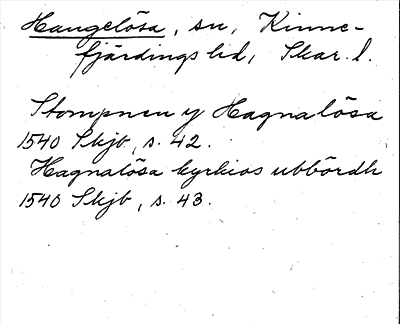 Hangelösa, sn, Kinne-
fjärdings hd, Skar. l.
Stompnen y Hagnalösa
1540 Skjb, s. 42.
Hagnalösa kyrkios ubbördh
1540 Skjb, s. 43.